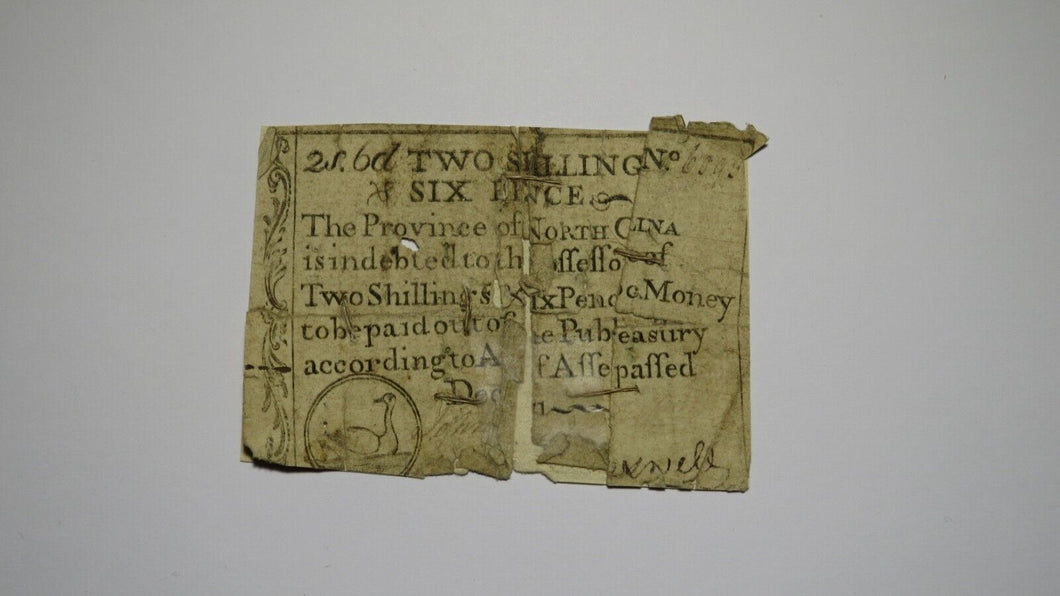 2s.6d TWO SHILLING No
SIX ENCE
The Province of NORTH C INA
is indebted to th ossesso of
Two Shillings Six Penc e. Money
to be paid out of e Pub easury
according to A f Asse passed
Dec
xwell